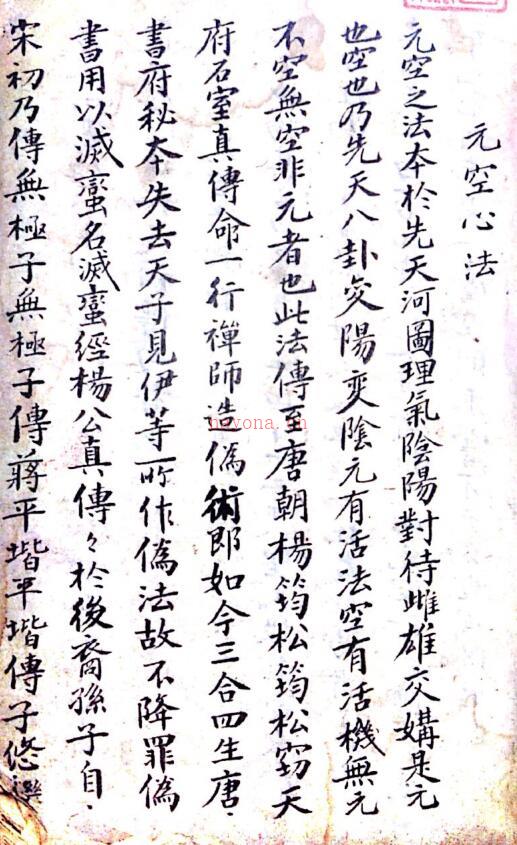 元空心法
元空之法本於先天河圖理氣陰陽對待雌雄交媾是元
也空也乃先天八卦爻陽变陰元有活法空有活機無元
不空無空非元者也此法傳至唐朝楊筠松筠松窃天
府石室真傳命一行禪師造偽術即如今三合四生唐、
書府秘夲失去天子見伊等所作偽法故不降罪偽
書用以滅蠻名滅蠻經楊公真傳々於後裔孫子自、
宋初乃傳無極子無極子傳蔣平堦平堦傳子悠
nayona.cn